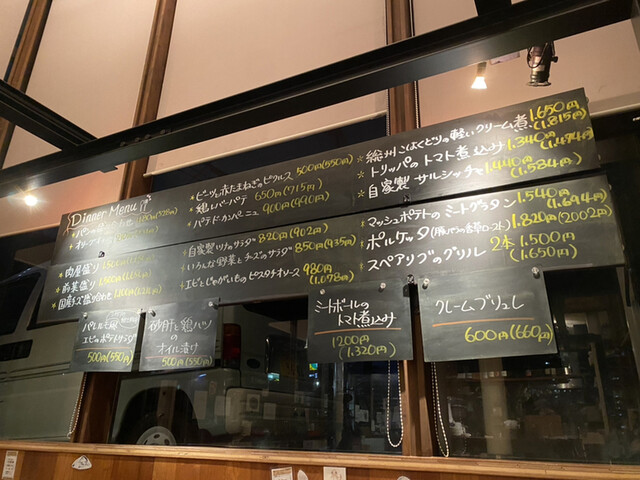 Dinner Menu
ピーツと赤たまねぎのピクルス 500円(550円)
鶏レバーパテ 650円(715円)
パテドカンパーニュ 900円(990円)
総州こはくどりの軽いクリーム煮 1.650円(1.815円)
トリッパのトマト煮込み
自家製 サルシッチャ 1.440円(1.584円)
肉屋盛り
前菜盛り
自家製ツナのサラダ 820円(902円)
いろんな野菜とチーズのサラダ 850円(935円)
エビとじゃがいものピスタチオソース 980円(1.078円)
マッシュポテトのミートグラタン 1.540円(1.694円)
ポルケッタ 1.820円(2002円)
スペアリブのグリル 2本 1.500円(1.650円)
エビとポテトサラダ
500円(550円)
砂肝と鶏ハツ
の
オイル漬け
500円(550円)
ミートボールの
トマト煮込み
1200円
(1.320円)
クレームブリュレ
600円(660円)